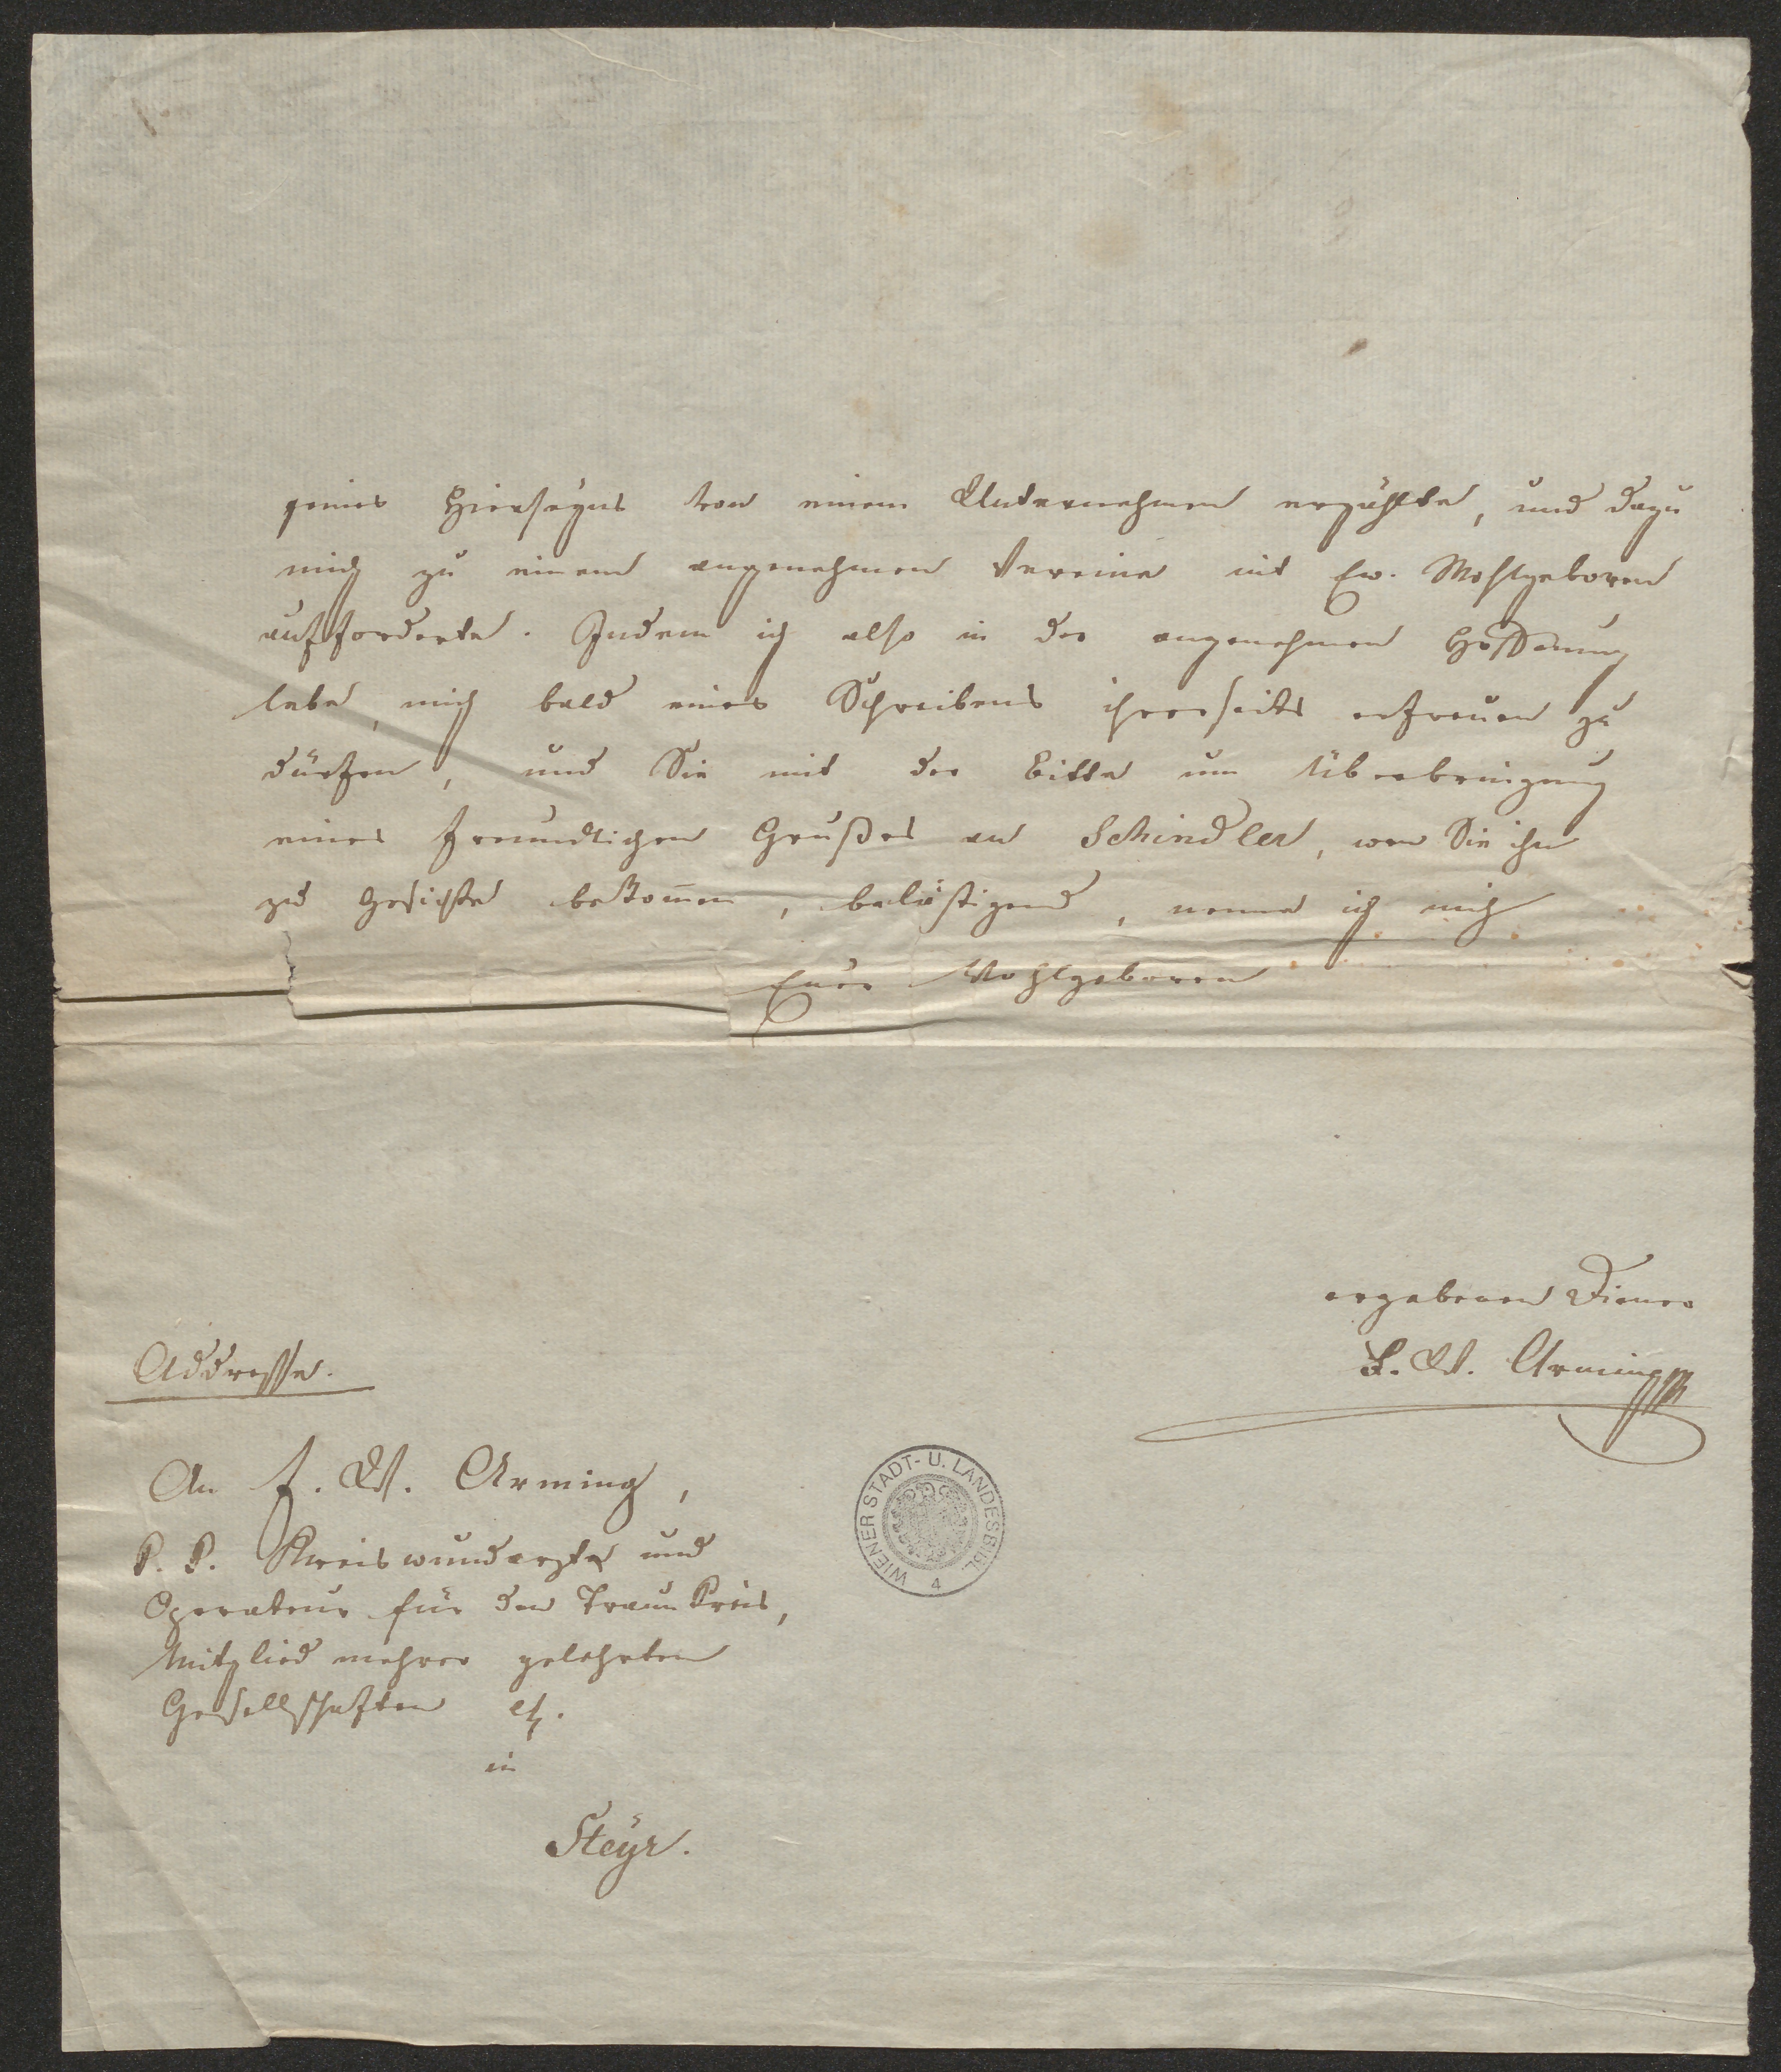 seines Hierseyns von einem Unternehmen erzählte, und dazu
mich zu einem angenehmen Vereine mit Ew. Wohlgeboren
aufforderte. Indem ich also in der angenehmen Hoffnung
lebe, mich bald eines Schreibens ihrerseits erfreuen zu
dürfen, und Sie mit der Bitte um Überbringung
eines freundlichen Grußes an Schindler, wen Sie ihn
zu Gesichte bekom̅en, belästigend, nenne ich mich
Euer Wohlgeboren
ergebenen Diener
F. W. Arming
Addresse.
An F. W. Arming,
k. k. Kreiswundarzte und
Operateur für den Traunkreis,
Mitglied mehrer gelehrten
Gesellschaften etz.
in
Steyr.
WIENER STADT- U. LANDESBIBL.
4